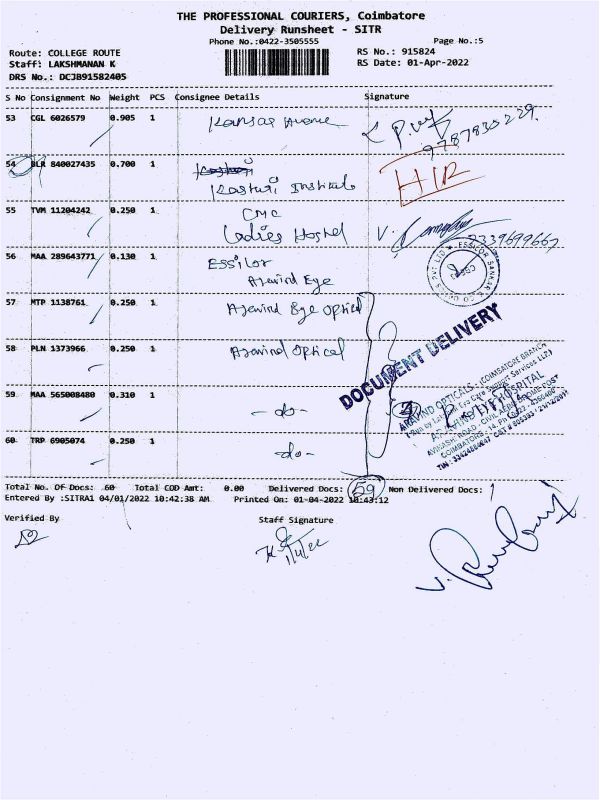 THE PROFESSIONAL COURIERS, Coimbatore
Delivery Runsheet - SITR
Phone No.:0422-3505555 Page No.:5
Route: COLLEGE ROUTE RS No.: 915824
Staff: LAKSHMANAN K RS Date: 01-Apr-2022
DRS No.: DCJB91582405
S No Consignment No Weight PCS Consignee Details Signature
53 CGL 6026579 0.905 1 Kansas Avenue
9787835229.
54 BLR 840027435 0.700 1 Kasturi
Kasturi Institute HIR
55 TVM 11204242 0.250 1 CMC
Ladies Hostel V.
56 MAA 289643771 0.130 1 Essilor
Aravind Eye
57 MTP 1138761 0.250 1 Aravind Eye Optical
58 PLN 1373966 0.250 1 Aravind Optical
DOCUMENT DELIVERY
59 MAA 565008480 0.310 1 -do-
ARAVIND OPTICALS, (COIMBATORE BRANCH)
60 TRP 6905074 0.250 1 -do-
Total No. Of Docs: 60 Total COD Amt: 0.00 Delivered Docs: 59 Non Delivered Docs: 1
Entered By :SITRA1 04/01/2022 10:42:38 AM Printed On: 01-04-2022 10:43:12
Verified By Staff Signature
1/4/22